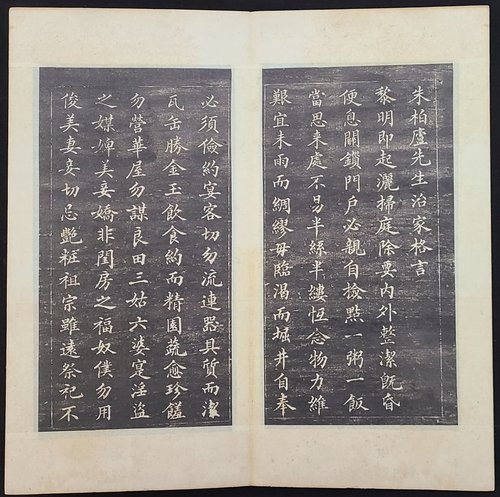 朱柏廬先生治家格言
黎明即起灑掃庭除要内外整潔既昏
便息關鎖門戶必親自撿點一粥一飯
當思来處不易半絲半縷恒念物力維
艱宜未雨而綢繆毋臨渴而掘井自奉
必須儉約宴客切勿流連器具質而潔
瓦缶勝金玉飲食約而精園蔬愈珍饈
勿營華屋勿謀良田三姑六婆寔淫盜
之媒婢美妾嬌非閨房之福奴僕勿用
俊美妻妾切忌艷粧祖宗雖遠祭祀不